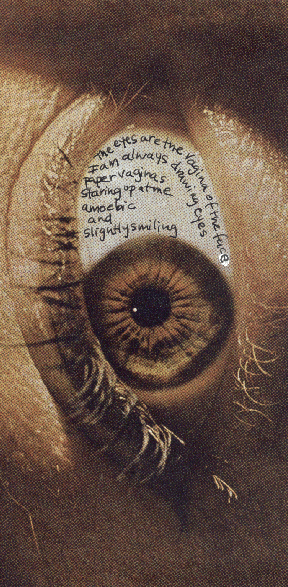 The eyes are the vagina of the face
I am always drawing eyes
paper vaginas
staring up at me
amoebic
and
slightly smiling